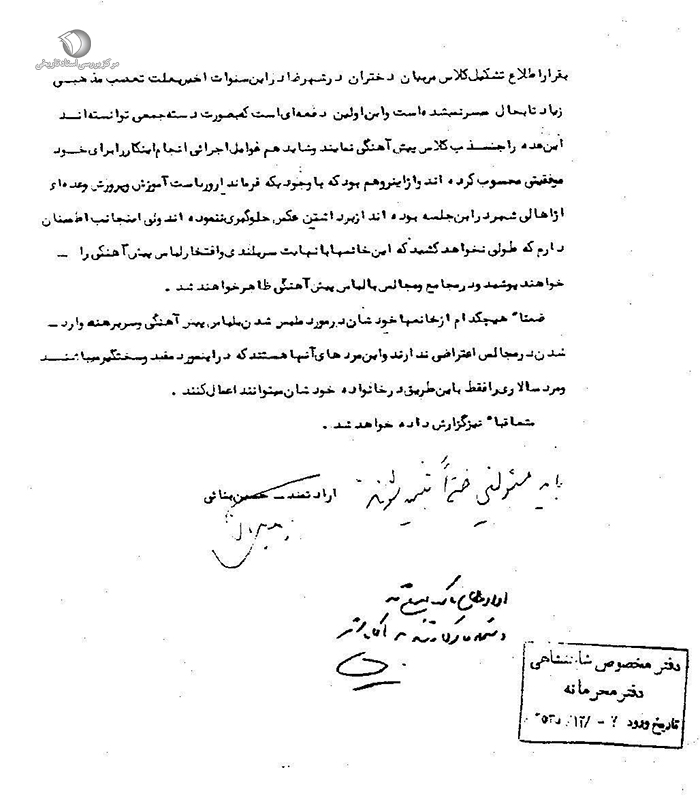 مرکز بررسی اسناد تاریخی
بقرار اطلاع تشکیل کلاس مربیان دختران در شهرضا در این سنوات اخیر بعلت تعصب مذهبی
زیاد تا بحال میسر نمیشده است و این اولین دفعه‌ای است که بصورت دسته جمعی توانسته اند
این عده را جذب کلاس پیش آهنگی نمایند و شاید هم عوامل اجرائی انجام اینکار را برای خود
موفقیتی محسوب کرده اند و از اینرو هم بود که با وجودیکه فرماندار و ریاست آموزش و پرورش و عده‌ای
از اهالی شهر در این جلسه بوده اند از برداشتن عکس جلوگیری ننموده اند ولی اینجانب اطمینان
دارم که طولی نخواهد کشید که این خانمها با نهایت سربلندی و افتخار لباس پیش آهنگی را -
خواهند پوشید و در مجامع و مجالس با لباس پیش آهنگی ظاهر خواهند شد .
ضمناً هیچکدام از خانمها خودشان در مورد ملبس شدن بلباس پیش آهنگی و سر برهنه وارد -
شدن در مجالس اعتراضی ندارند و این مردهای آنها هستند که در اینمورد مقید و سختگیر میباشند
و مرد سالاری را فقط باین طریق در خانواده خودشان میتوانند اعمال کنند .
متعاقباً نیز گزارش داده خواهد شد .
ارادتمند - حسین بنائی
باید مسئولین حتماً تنبیه شوند
دفتر مخصوص شاهنشاهی
دفتر محرمانه
تاریخ ورود